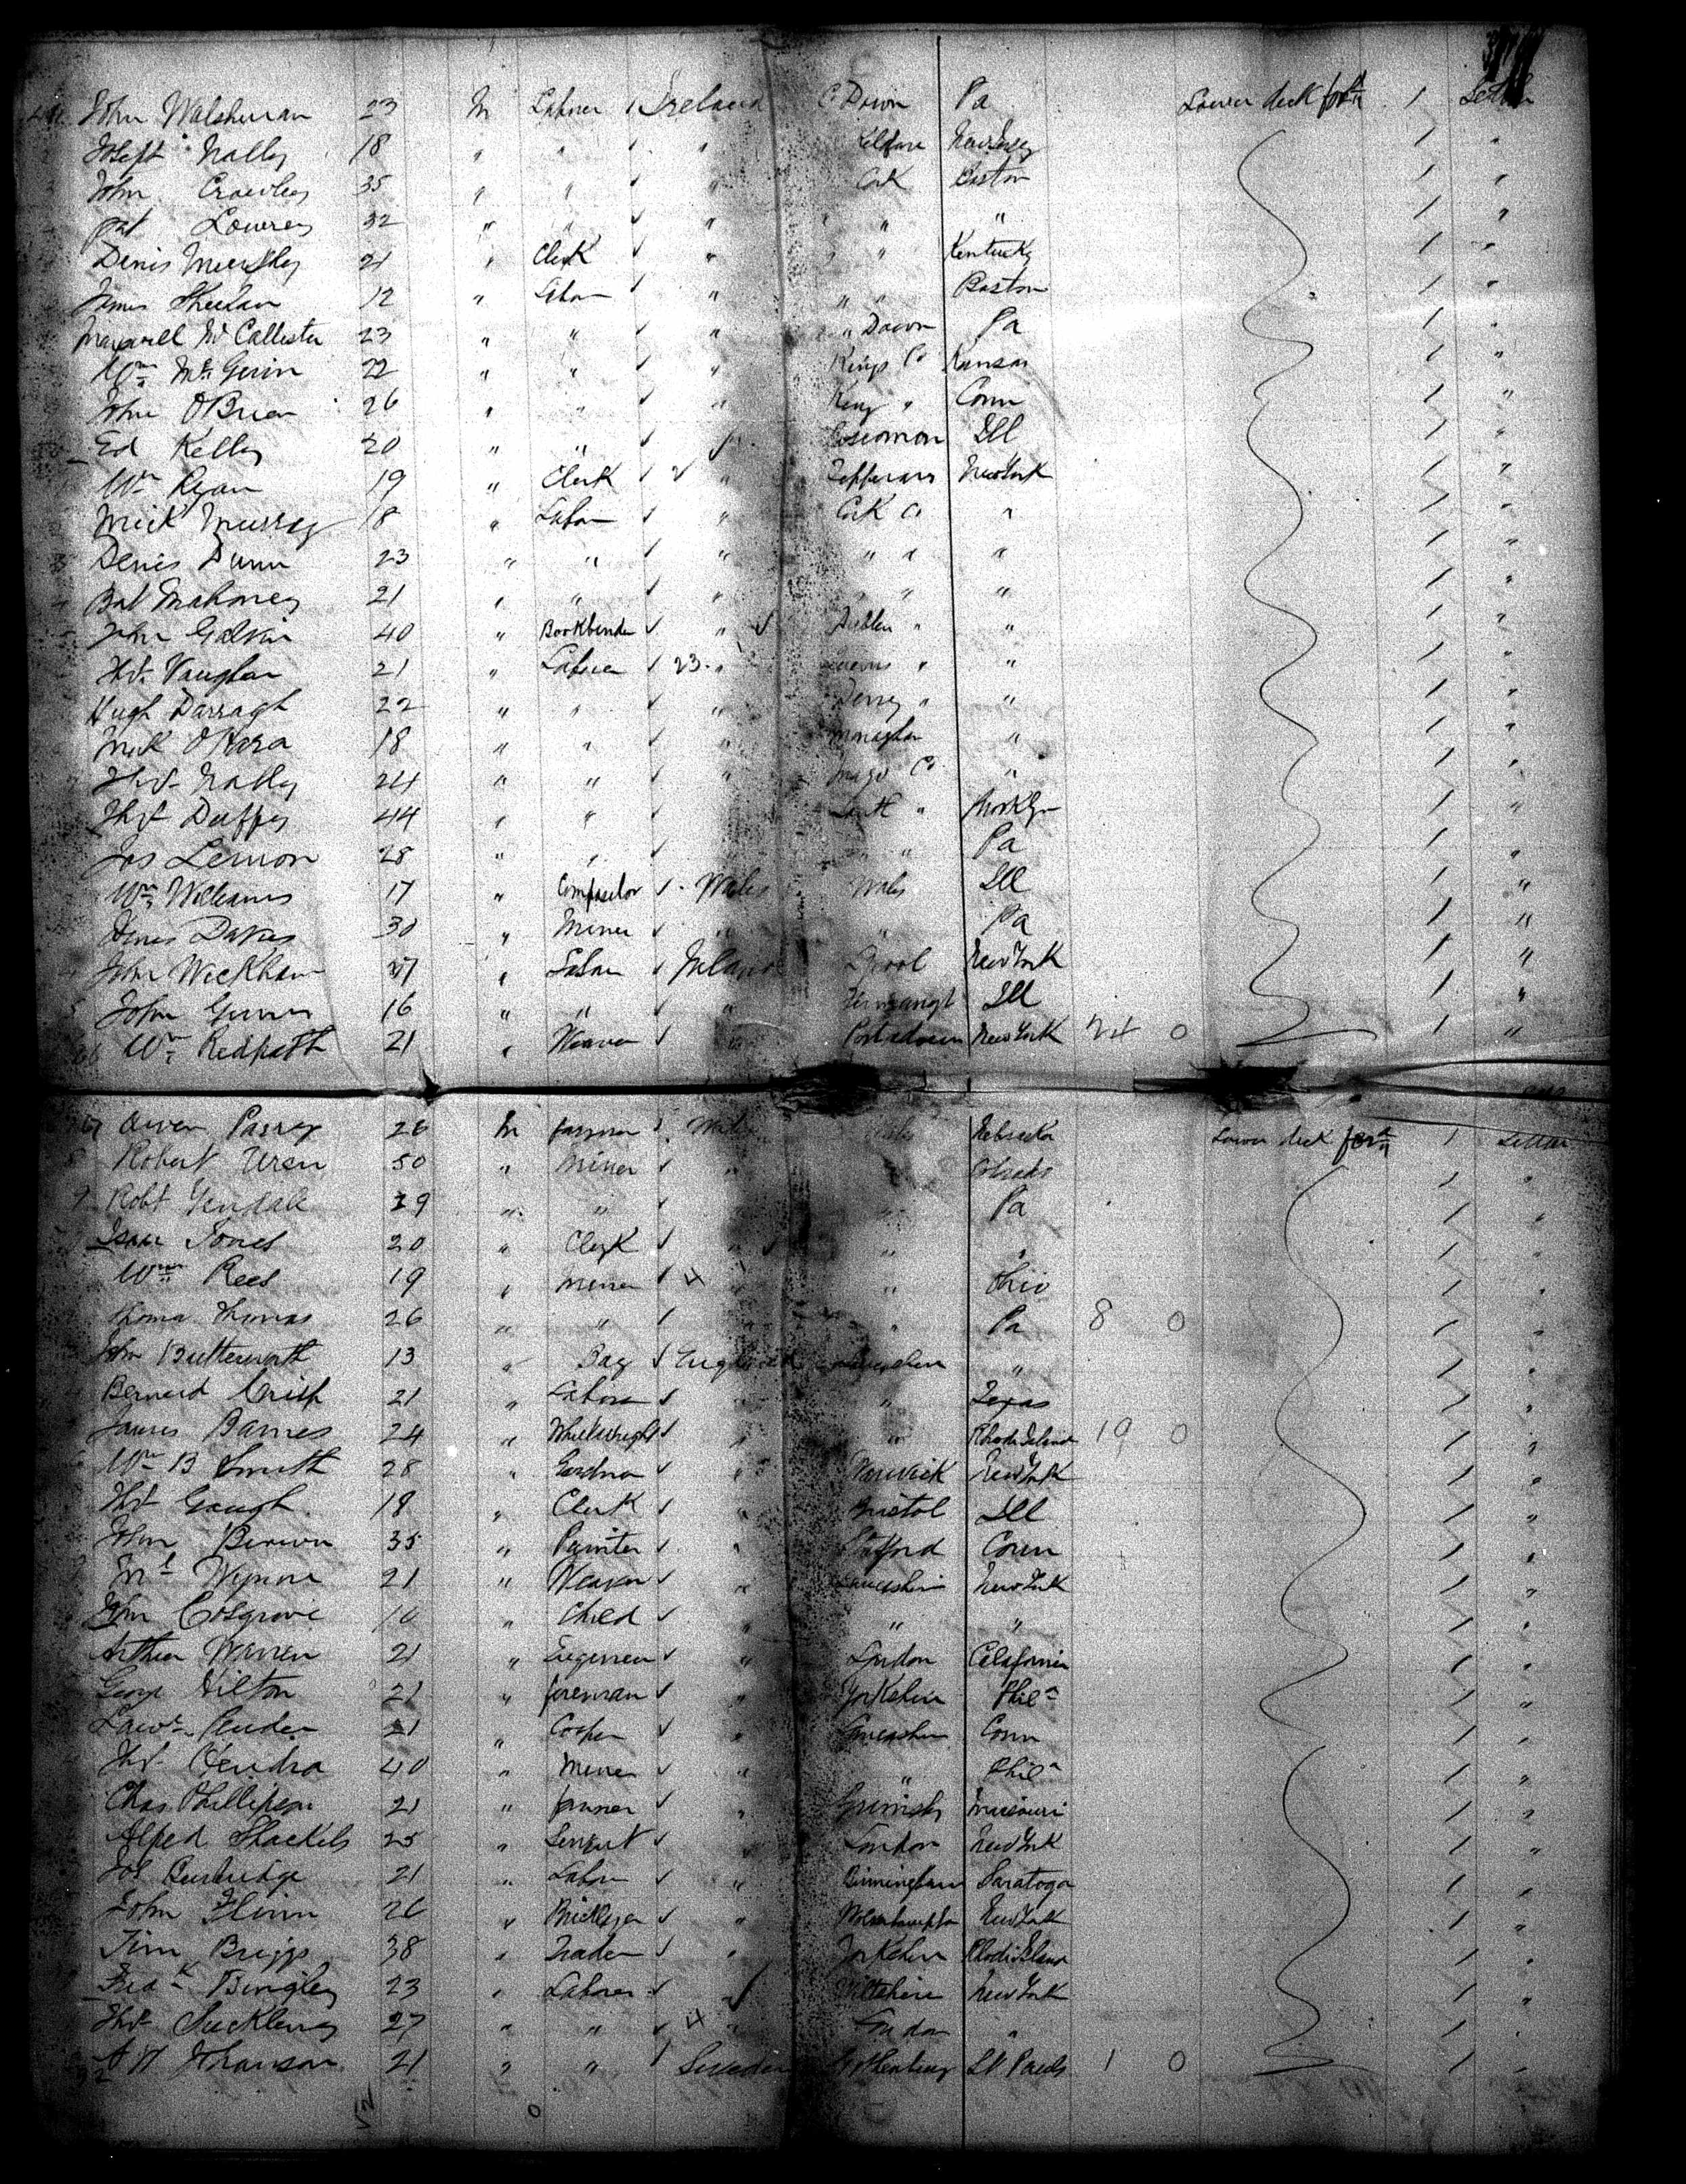 John Walsherran 23 M Labourer Ireland C. Down Pa Lower deck for'd 1 Letter
Nally 18 " " " Kildare New Jersey 1 "
John Crowley 35 " " " Cork Boston 1 "
Pat Lowrey 32 " " " " " 1 "
Denis Murphy 21 " Clerk " " Kentucky 1 "
James Sheehan 12 " Labor " " " Boston 1 "
Maxwell McCallester 23 " " " " Down Pa 1 "
Wm McGivin 22 " " " Kings Co Kansas 1 "
John O'Brien 26 " " " King " Conn 1 "
Ed Kelly 20 " " Roscomon Ill 1 "
Wm Ryan 19 " Clerk " Tipperary New York 1 "
Mick Murray 18 " Labor " Cork Co " 1 "
Denis Dunn 23 " " " " " " 1 "
Bat Mahoney 21 " " " " " " 1 "
John Galvin 40 " Bookbinder " Dublin " " 1 "
Thos. Vaughan 21 " Labourer 23 " " " 1 "
Hugh Darragh 22 " " " Derry " " 1 "
Mick O'Hara 18 " " " Monaghan " 1 "
Thos. Nally 24 " " " Mayo Co " 1 "
Thos Duffy 44 " " " Louth " Brooklyn 1 "
Jos Lemon 28 " " " " " Pa 1 "
Wm Williams 17 " Compositor Wales Wales Ill 1 "
Davies 30 " Miner " " Pa 1 "
John Wickham 37 " Labor Ireland L'pool New York 1 "
John 16 " " " Ill 1 "
Wm Redpath 21 " Weaver " Portadown New York 24 0 1 "
Owen Parry 26 M farmer Wales Wales Nebraska Lower deck for'd 1 Letter
Robert Uren 50 " Miner " Colorado 1 "
Robt Yendall 29 " " " Pa 1 "
Isaac Jones 20 " Clerk " " " 1 "
Wm Rees 19 " Miner 4 " Ohio 1 "
Thomas Thomas 26 " " " Pa 8 0 1 "
John Butterworth 13 " Boy England Lancashire " 1 "
Bernard Crisp 21 " Labor " Texas 1 "
James Barnes 24 " Wheelwright " " Rhode Island 19 0 1 "
Wm B Smith 28 " Gardner " Warwick New York 1 "
Thos Gough 18 " Clerk " Bristol Ill 1 "
John Brown 35 " Painter " Conn 1 "
Wynne 21 " Weaver " Lancashire New York 1 "
John Cosgrove 10 " Child " " " 1 "
Arthur Warren 21 " Engineer " London California 1 "
George Hilton 21 " foreman " Yorkshire Phila 1 "
Lawr. Pender 21 " Cooper " Lancashire Conn 1 "
Thos. Hendra 40 " Miner " " Phila 1 "
Chas. Phillipson 21 " farmer " Grimsby Missouri 1 "
Alfred Shackels 25 " Servant " London New York 1 "
Jos 21 " Labor " Birmingham Saratoga 1 "
John Flinn 26 " Bricklayer " Wolverhampton New York 1 "
Jim Briggs 38 " Trader " Yorkshire Rhode Island 1 "
Fredk Bingley 23 " Laborer Wiltshire New York 1 "
Thos. Suckling 27 " " 4 " London " 1 "
Johanson 21 " " Sweden Gothenburg St Pauls 1 0 1 "